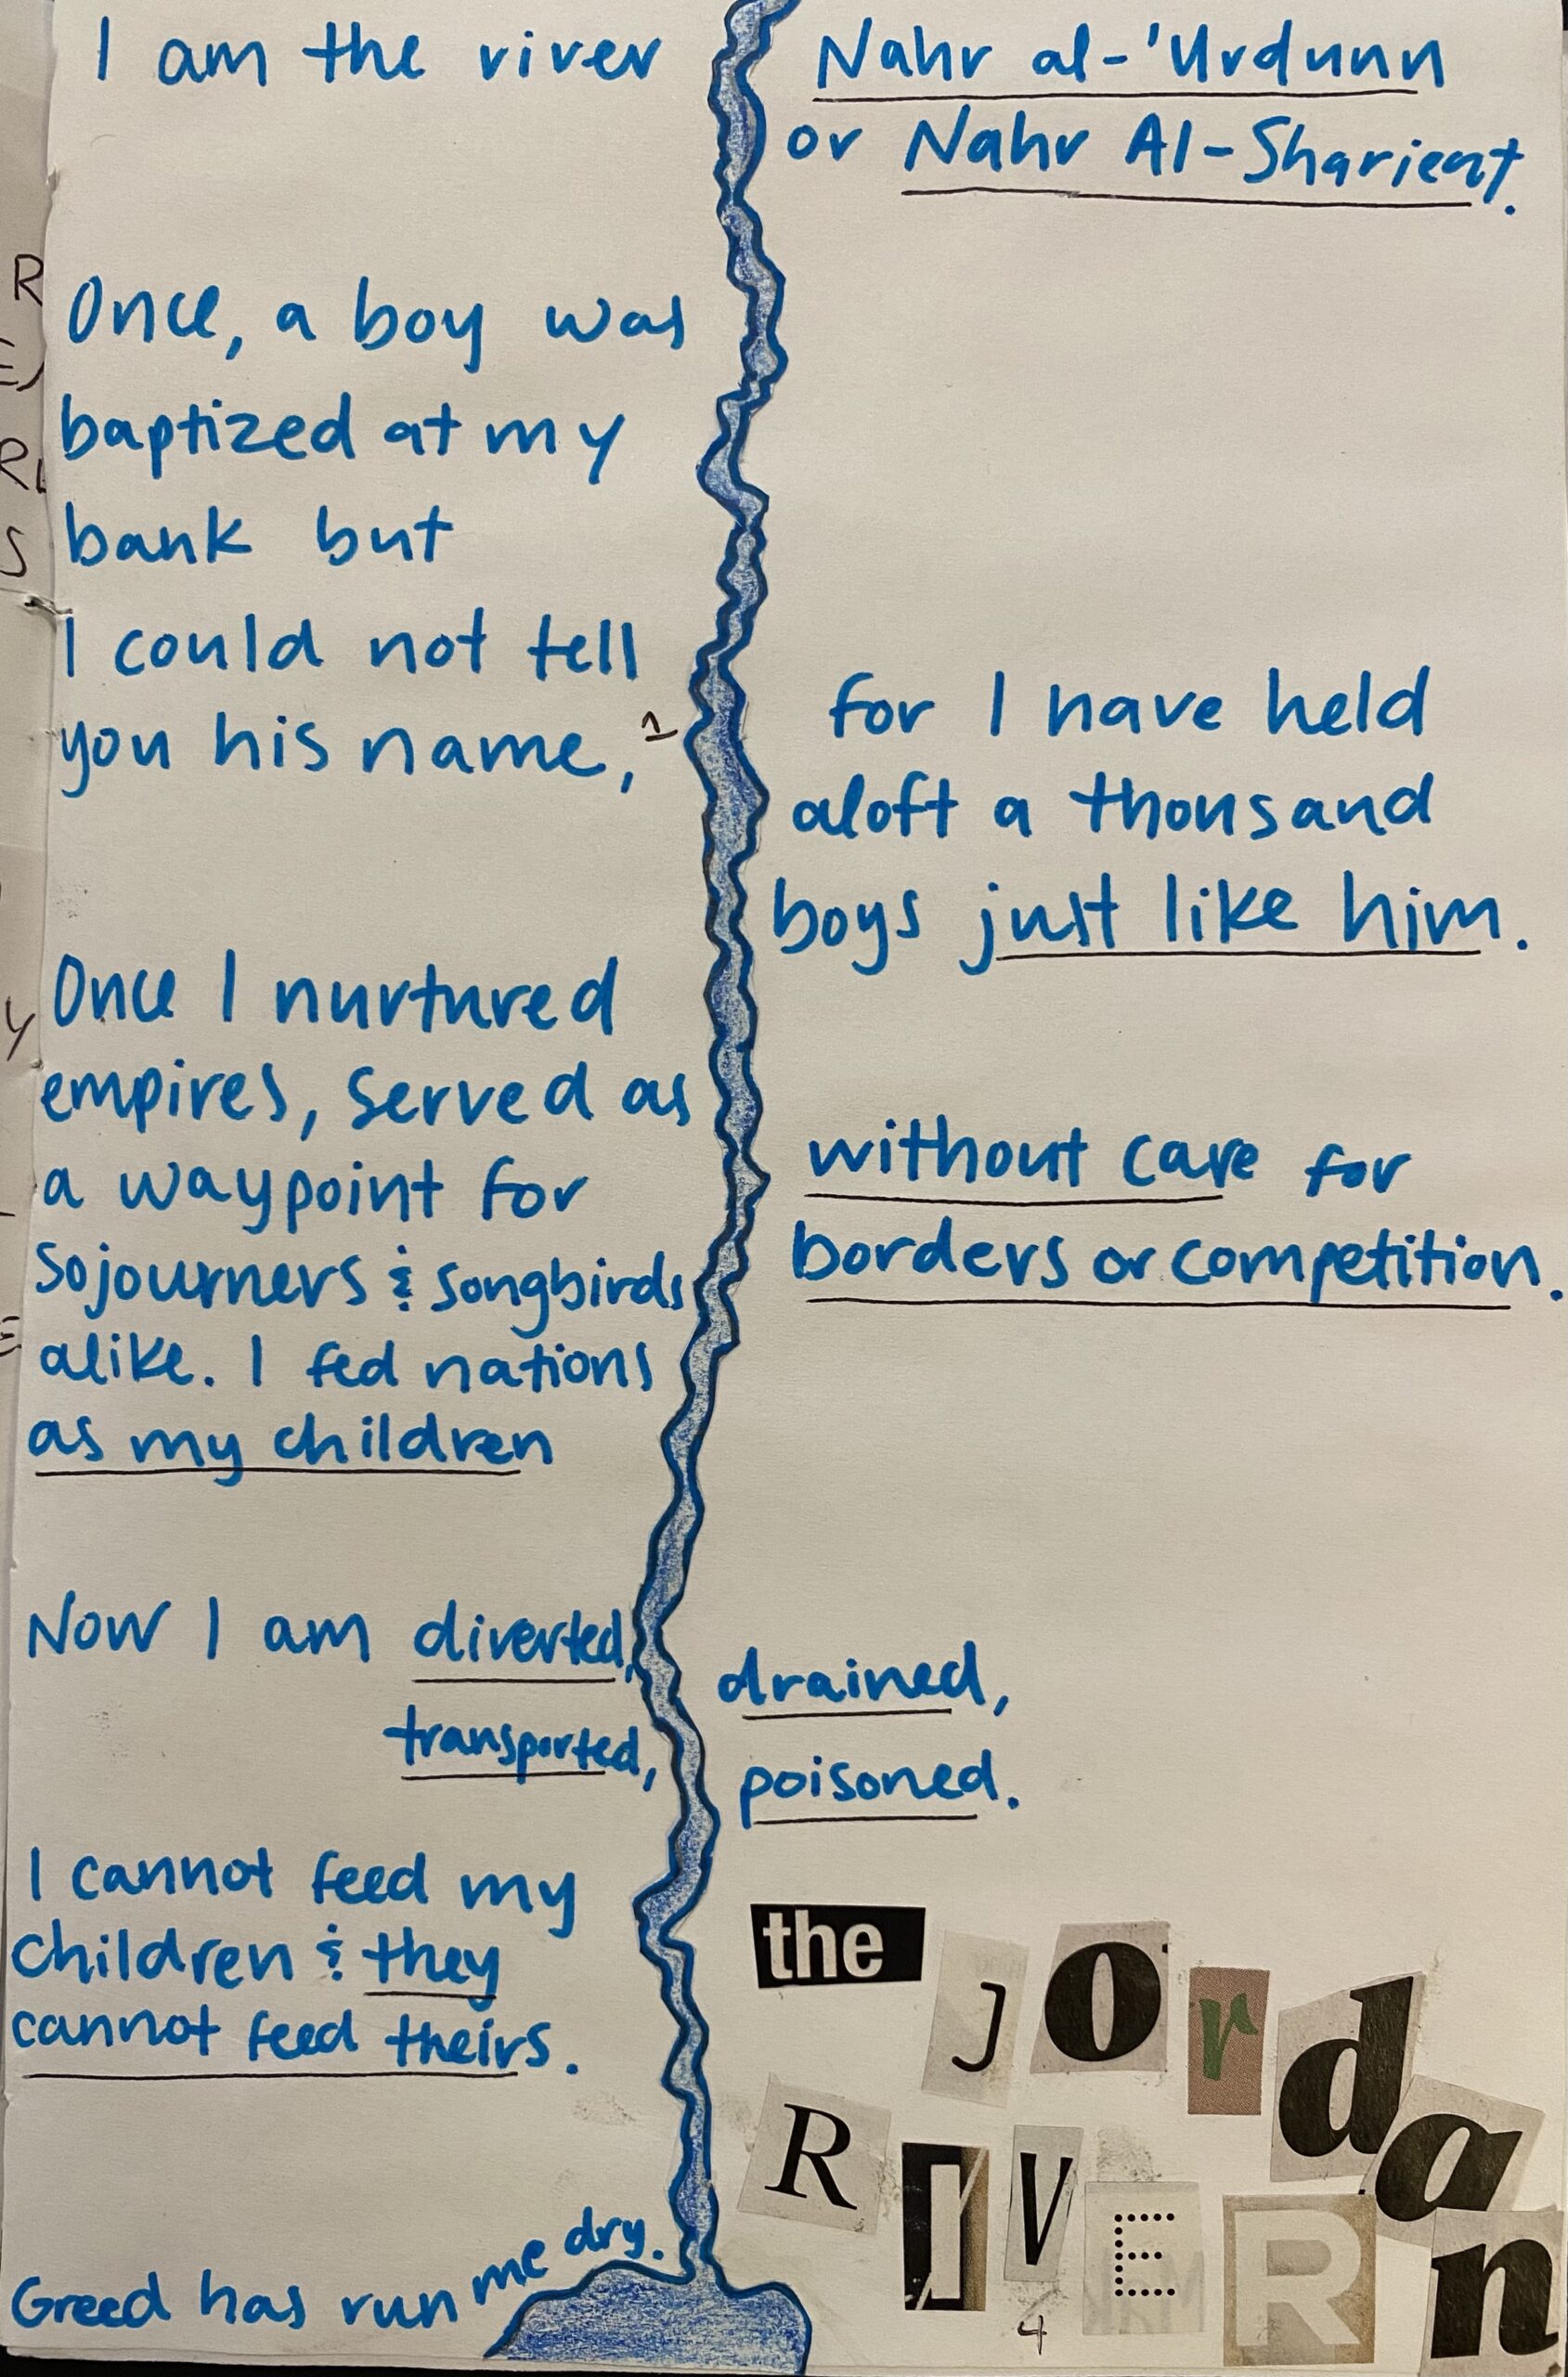 I am the river
Nahr al-'Urdunn
or Nahr Al-Sharieat.
Once, a boy was
baptized at my
bank but
I could not tell
you his name, 1
for I have held
aloft a thousand
boys just like him.
Once I nurtured
empires, served as
a waypoint for
sojourners & songbirds
alike. I fed nations
as my children
without care for
borders or competition.
Now I am diverted,
drained,
transported,
poisoned.
I cannot feed my
children & they
cannot feed theirs.
Greed has run me dry.
the jordan
RIVER
4